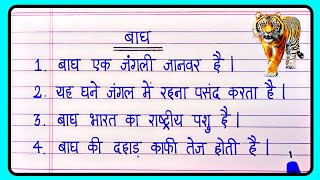 बाघ
1. बाघ एक जंगली जानवर है |
2. यह घने जंगल में रहना पसंद करता है |
3. बाघ भारत का राष्ट्रीय पशु है |
4. बाघ की दहाड़ काफी तेज होती है |